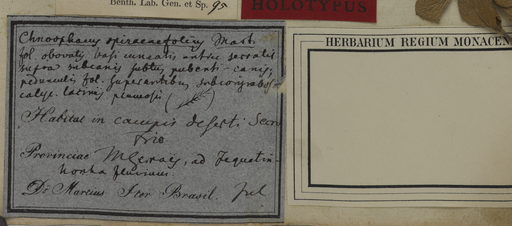 Benth. Lab. Gen. et Sp. 95
HOLOTYPUS
Chnoophanus spiraeaefolius Mart.
fol. obovatis basi cuneatis antice serratis
supra subcanis subtus pubenti-canis,
pedunculis fol. superantibus,
calyc. laciniis plumosis
Habitat in campis deserti Serro
frio
Provinciae M Geraës, ad Jequetin-
honha fluvium.
Dr Martius Iter Brasil.
HERBARIUM REGIUM MONACEN